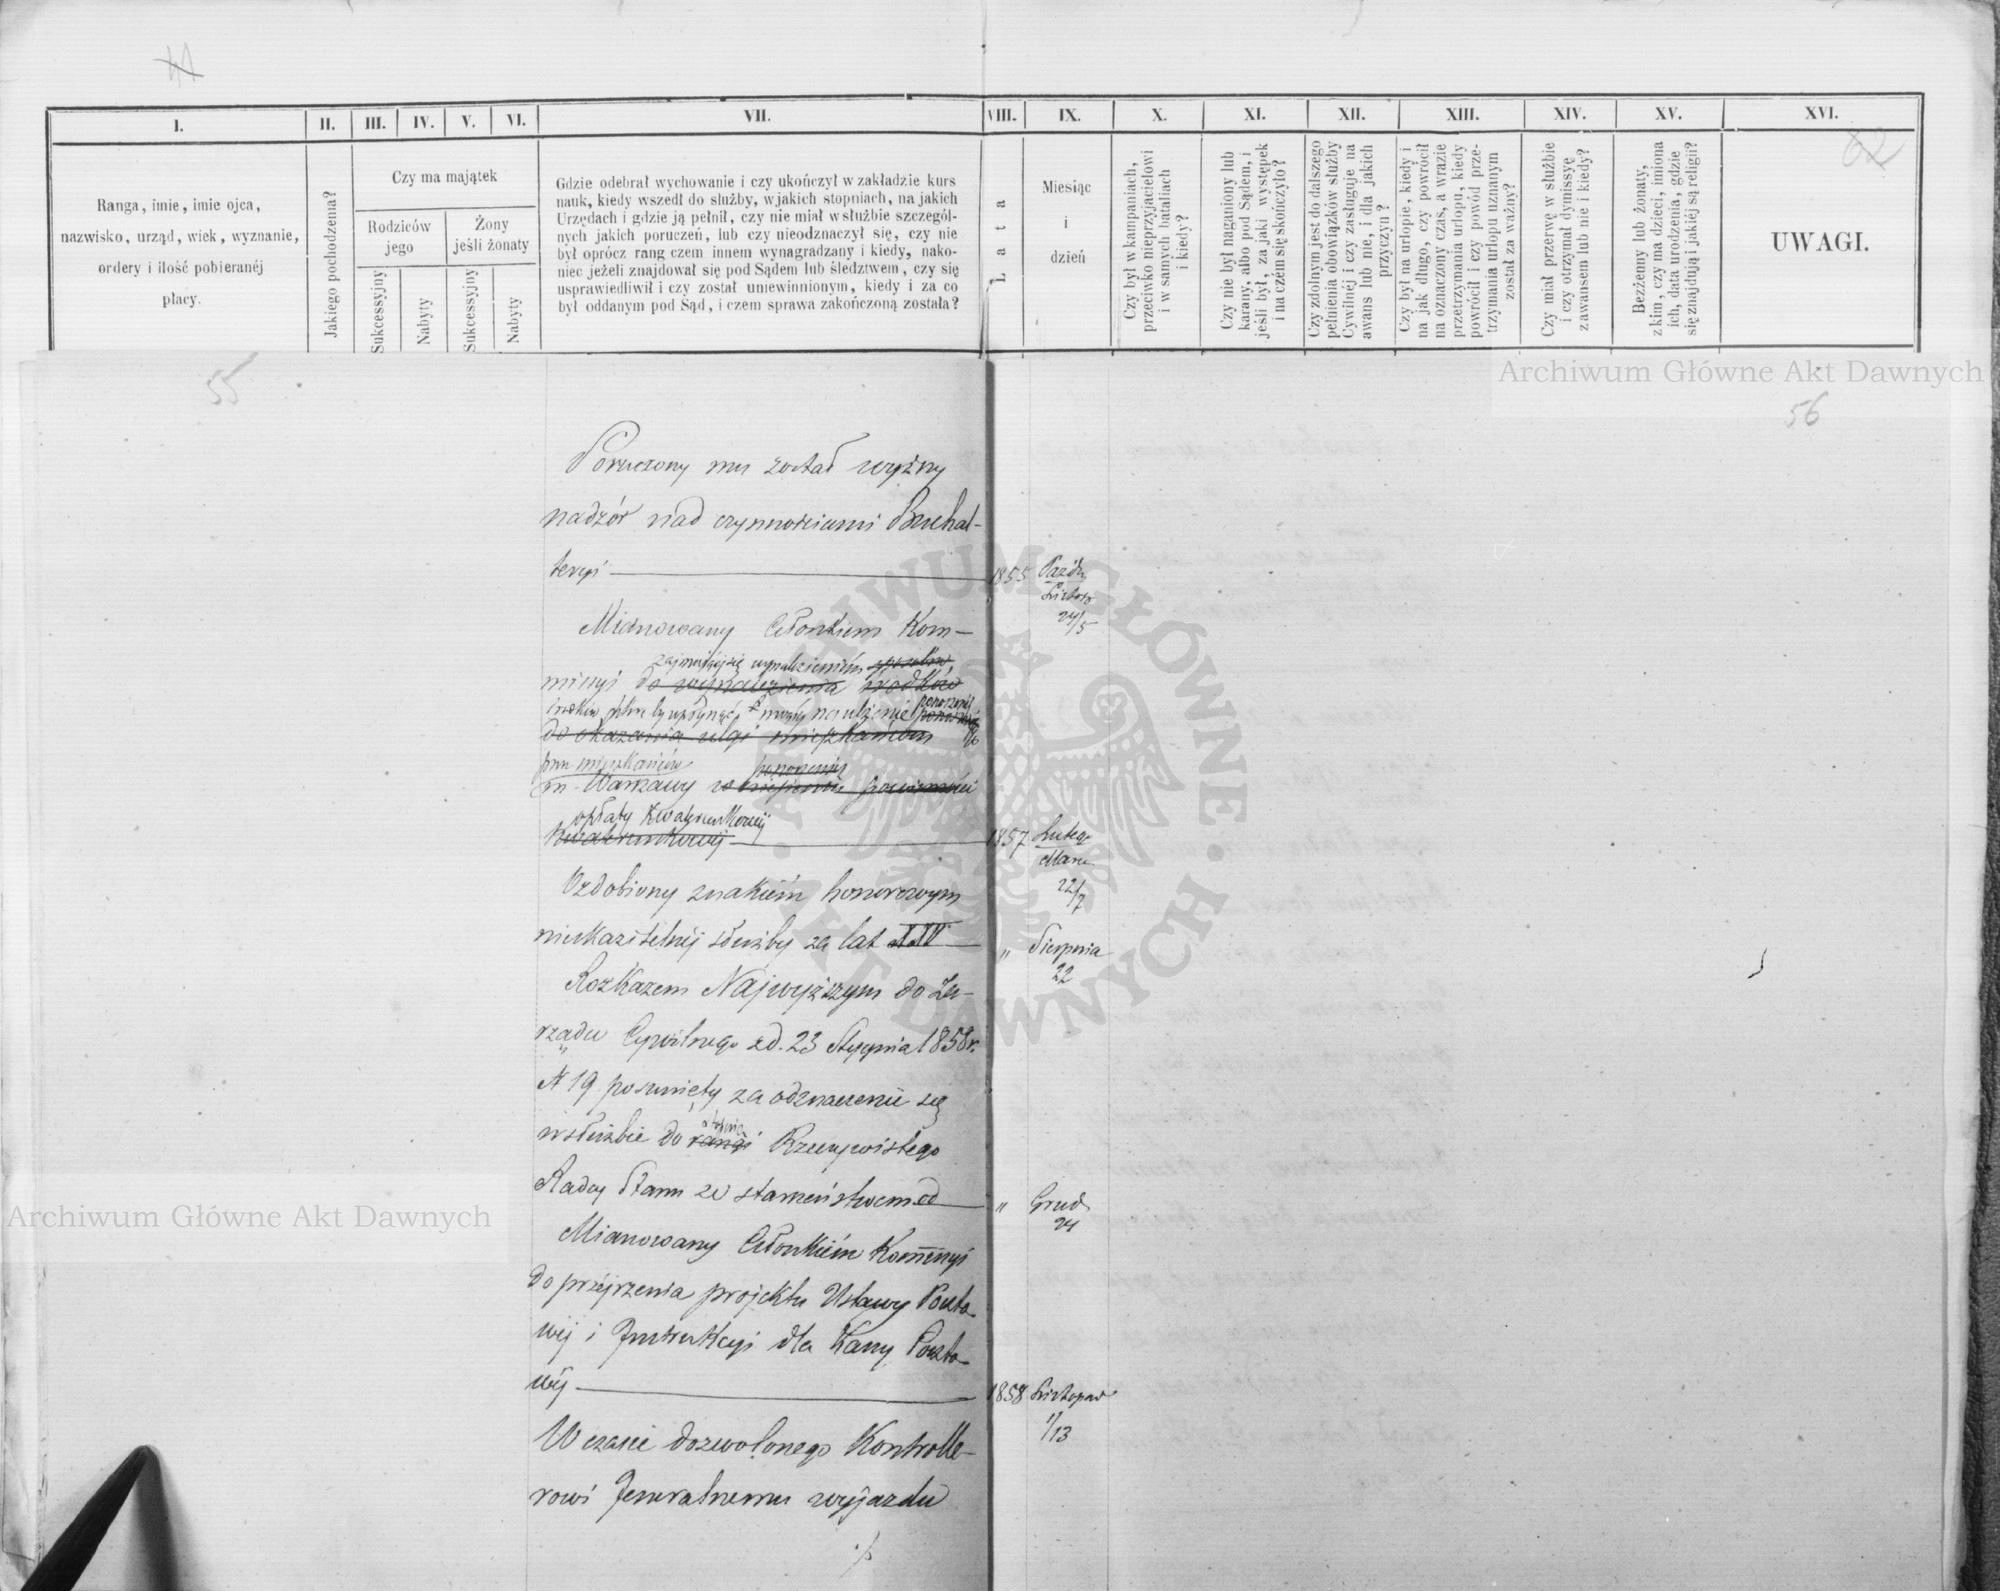 41
I. II. III. IV. V. VI. VII. VIII. IX. X. XI. XII. XIII. XIV. XV. XVI.
62
Ranga, imie, imie ojca,
nazwisko, urząd, wiek, wyznanie,
ordery i ilość pobieranéj
płacy.
Jakiego pochodzenia?
Czy ma majątek
Rodziców
jego
Żony
jeśli żonaty
Sukcessyjny
Nabyty
Sukcessyjny
Nabyty
Gdzie odebrał wychowanie i czy ukończył w zakładzie kurs
nauk, kiedy wszedł do służby, w jakich stopniach, na jakich
Urzędach i gdzie ją pełnił, czy nie miał w służbie szczegól-
nych jakich poruczeń, lub czy nieodznaczył się, czy nie
był oprócz rang czem innem wynagradzany i kiedy, nako-
niec jeżeli znajdował się pod Sądem lub śledztwem, czy się
usprawiedliwił i czy został uniewinnionym, kiedy i za co
był oddanym pod Sąd, i czem sprawa zakończoną została?
Lata
Miesiąc
i
dzień
Czy był w kampaniach,
przeciwko nieprzyjacielowi
i w samych bataliach
i kiedy?
Czy nie był naganiony lub
karany, albo pod Sądem, i
jeśli był, za jaki występek
i na czém się skończyło?
Czy zdolnym jest do dalszego
pełnienia obowiązków służby
Cywilnéj i czy zasługuje na
awans lub nie, i dla jakich
przyczyn?
Czy był na urlopie, kiedy i
na jak długo, czy powrócił
na oznaczony czas, a w razie
przetrzymania urlopu, kiedy
powrócił i czy powód prze-
trzymania urlopu uznanym
został za ważny?
Czy miał przerwę w służbie
i czy otrzymał dymissyę
z awansem lub nie i kiedy?
Bezżenny lub żonaty,
z kim, czy ma dzieci, imiona
ich, data urodzenia, gdzie
się znajdują i jakiéj są religii?
UWAGI.
Archiwum Główne Akt Dawnych
55
56
Poruczony mu został wyższy
nadzór nad czynnościami Buchal-
teryi 1855 Paźdz
Listop
24/5
Mianowany Członkiem Kom-
zajmującéj się wynalezieniem sposobów
missyi do wynalezienia środków
do okazania ulgi mieszkańcom
przez mieszkańców
m. Warszawy w ponoszeniu powinności
opłaty kwaterunkowéj
kwaterunkowéj 1857 Lutego
Marca
22/7
Ozdobiony znakiem honorowym
nieskazitelnéj służby za lat XXV " Sierpnia
22
Rozkazem Najwyższym do Za-
rządu Cywilnego z d. 23 Stycznia 1858 r.
N 19 posunięty za odznaczenie się
stopnia
w służbie do rangi Rzeczywistego
Radcy Stanu ze starszeństwem od " Grud
24
Archiwum Główne Akt Dawnych
Mianowany Członkiem Kommissyi
do przejrzenia projektu Ustawy Poczto-
wéj i Instrukcyi dla Kassy Poczto-
wéj 1858 Listopad
1/13
W czasie dozwolonego Kontrolle-
rowi Jeneralnemu wyjazdu
ARCHIWUM GŁÓWNE AKT DAWNYCH